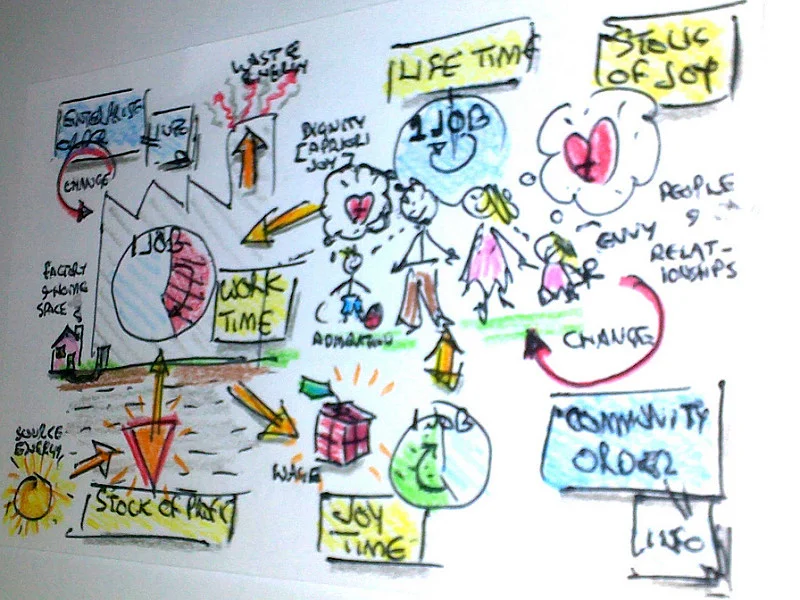 WASTE
ENERGY
LIFE TIME
STOCK
OF JOY
ENTERPRISE
ORDER
INFO
CHANGE
DIGNITY
[APRIORI
JOY]
1 JOB
PEOPLE
&
RELAT-
IONSHIPS
ENVY
1 JOB
FACTORY
& HOME
SPACE
WORK
TIME
ADMIRATION
CHANGE
SOURCE
ENERGY
WAGE
1 JOB
COMMUNITY
ORDER
STOCK OF PROFIT
JOY
TIME
INFO